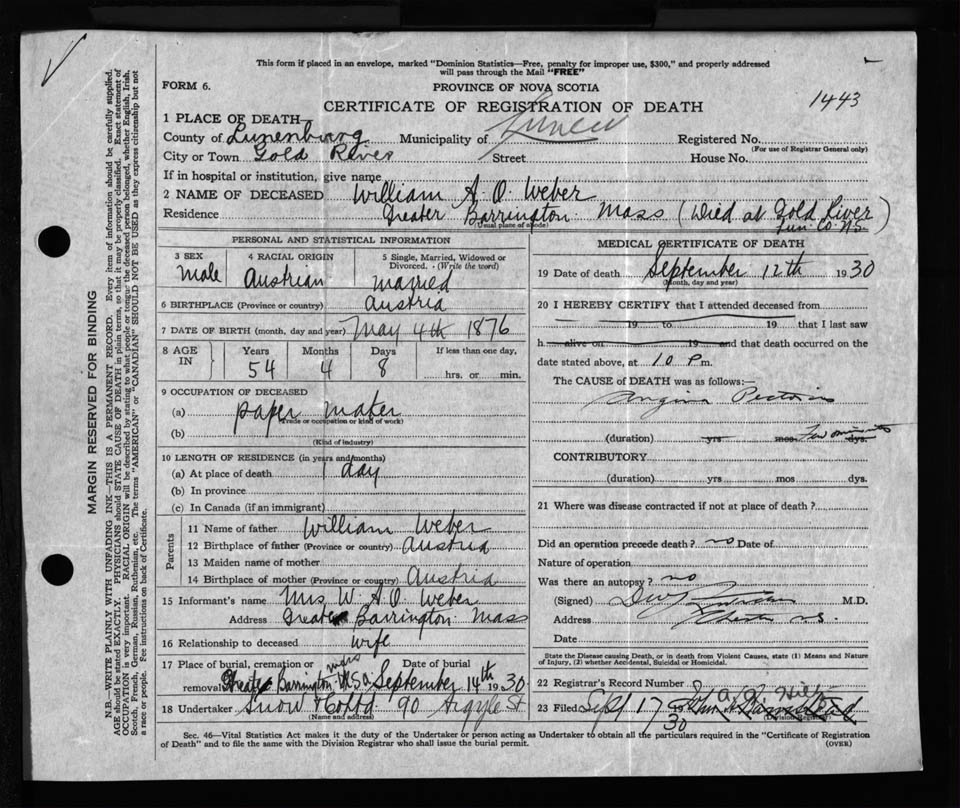 This form if placed in an envelope, marked "Dominion Statistics—Free, penalty for improper use, $300," and properly addressed
will pass through the Mail "FREE"
FORM 6.
PROVINCE OF NOVA SCOTIA
CERTIFICATE OF REGISTRATION OF DEATH
1443
1 PLACE OF DEATH—
County of Lunenburg Municipality of Registered No.
(For use of Registrar General only)
City or Town Gold River Street House No.
If in hospital or institution, give name
2 NAME OF DECEASED William A. O. Weber
Residence Greater Barrington Mass (Died at Gold River
(Usual place of abode) Lun. Co. N.S.)
PERSONAL AND STATISTICAL INFORMATION
3 SEX 4 RACIAL ORIGIN 5 Single, Married, Widowed or
Divorced. (Write the word)
Male Austrian Married
6 BIRTHPLACE (Province or country) Austria
7 DATE OF BIRTH (month, day and year) May 4th 1876
8 AGE IN Years Months Days If less than one day,
54 4 8 hrs. or min.
9 OCCUPATION OF DECEASED
(a) paper maker
(Trade or occupation or kind of work)
(b)
(Kind of industry)
10 LENGTH OF RESIDENCE (in years and months)
(a) At place of death 1 day
(b) In province
(c) In Canada (if an immigrant)
Parents
11 Name of father William Weber
12 Birthplace of father (Province or country) Austria
13 Maiden name of mother
14 Birthplace of mother (Province or country) Austria
15 Informant's name Mrs W. A. O. Weber
Address Greater Barrington Mass
16 Relationship to deceased wife
17 Place of burial, cremation or Date of burial
mass
removal Greater Barrington U.S.A. September 14th 1930
18 Undertaker Snow & Co Ltd 90 Argyle St
(Name and address)
MEDICAL CERTIFICATE OF DEATH
19 Date of death September 12th 1930
(Month, day and year)
20 I HEREBY CERTIFY that I attended deceased from
19 to 19 that I last saw
h alive on 19 and that death occurred on the
date stated above, at 10 P m.
The CAUSE of DEATH was as follows:—
Angina Pectoris
(duration) yrs. mos. dys. few minutes
CONTRIBUTORY
(duration) yrs mos dys.
21 Where was disease contracted if not at place of death?
Did an operation precede death? no Date of
Nature of operation
Was there an autopsy? no
(Signed) M.D.
Address Chester N.S.
Date
State the Disease causing Death, or in death from Violent Causes, state (1) Means and Nature
of Injury, (2) whether Accidental, Suicidal or Homicidal.
22 Registrar's Record Number
23 Filed Sept 17 1930
(Division Registrar)
Sec. 46—Vital Statistics Act makes it the duty of the Undertaker or person acting as Undertaker to obtain all the particulars required in the "Certificate of Registration
of Death" and to file the same with the Division Registrar who shall issue the burial permit.
(OVER)
MARGIN RESERVED FOR BINDING
N.B.—WRITE PLAINLY WITH UNFADING INK—THIS IS A PERMANENT RECORD. Every item of information should be carefully supplied.
AGE should be stated EXACTLY. PHYSICIANS should STATE CAUSE OF DEATH in plain terms, so that it may be properly classified. Exact statement of
OCCUPATION is very important. RACIAL ORIGIN will be described by stating to what people or tongue the deceased person belonged, whether English, Irish,
Scotch, French, German, Russian, Ruthenian, etc. The terms "AMERICAN" or "CANADIAN" SHOULD NOT BE USED as they express citizenship but not
a race or people. Fee instructions on back of Certificate.